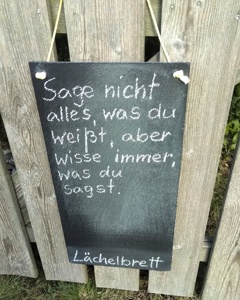 Sage nicht
alles, was du
weißt, aber
wisse immer,
was du
sagst.
Lächelbrett